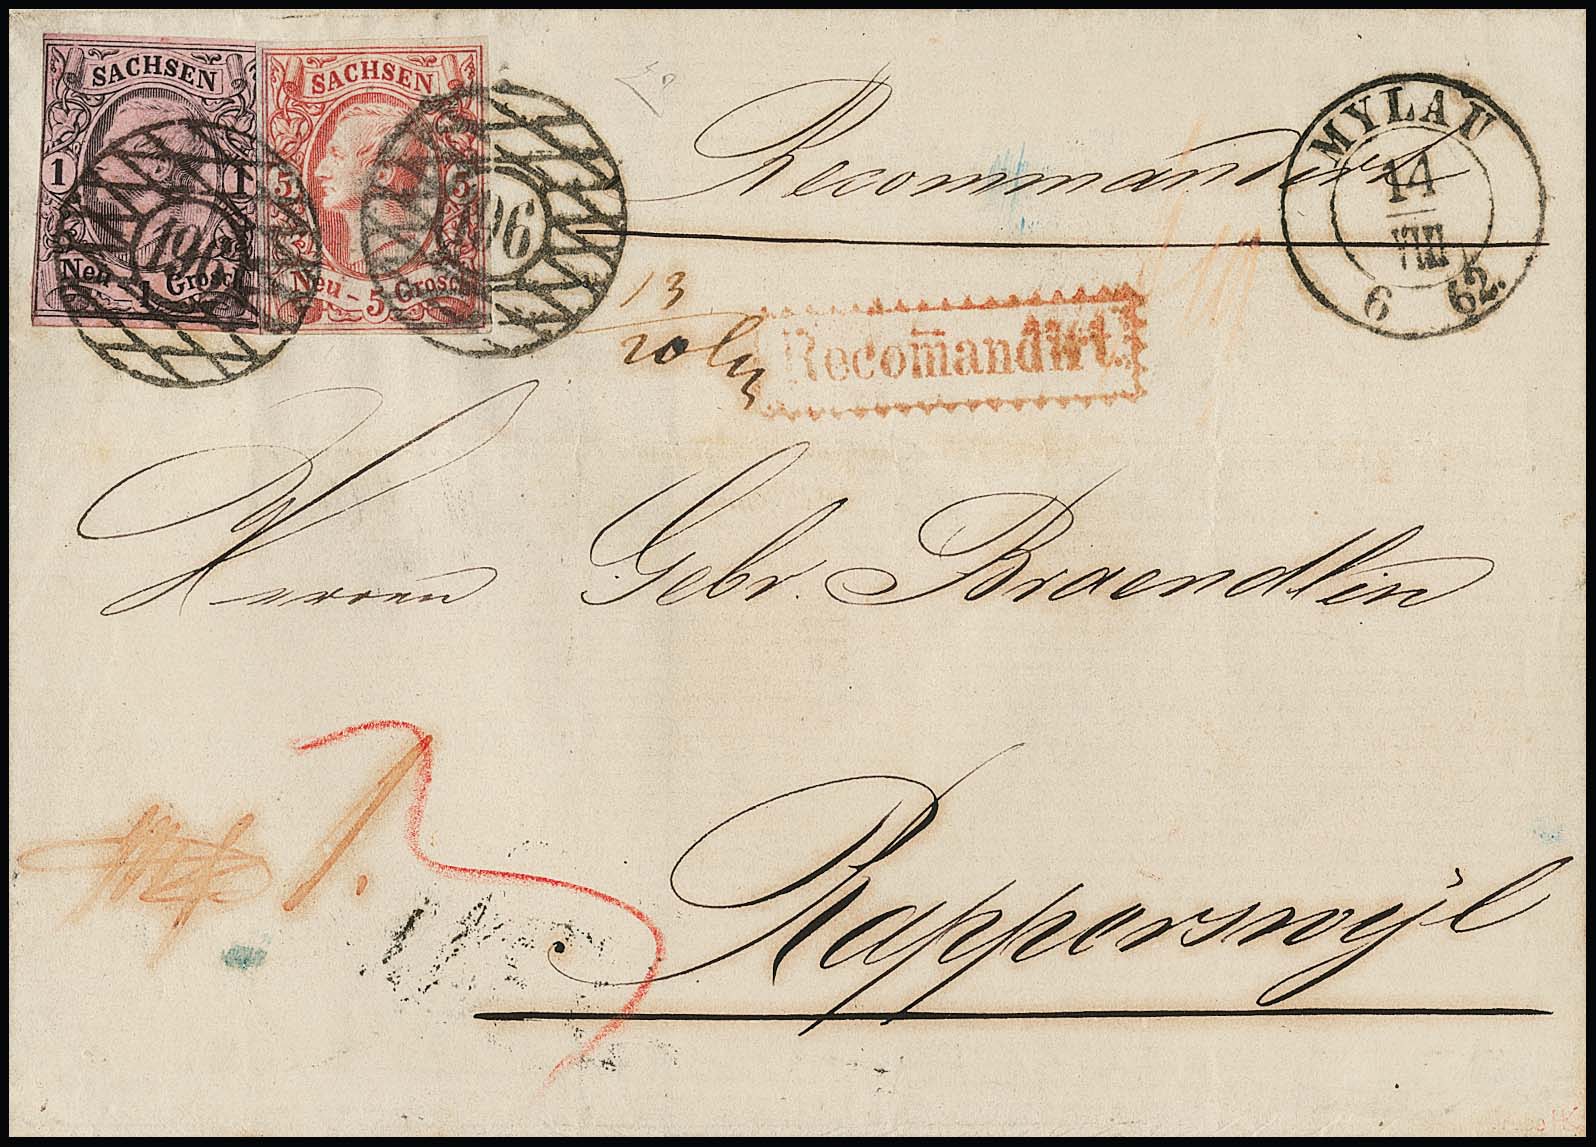 SACHSEN
1 1
Neu - 1 Grosch
SACHSEN
5 5
Neu - 5 Grosch
196
196
Recommandirt
MYLAU
14
VIII
6 62.
13
Recom̄andirt.
Herren Gebr. Braendlin
Rapperswyl